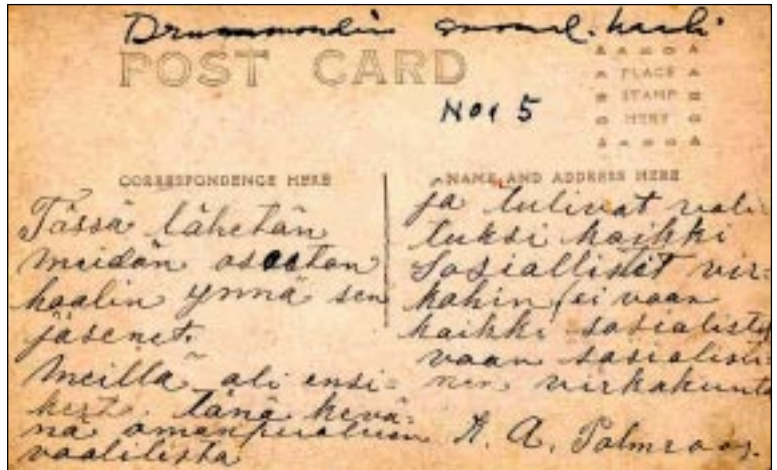 Drummondin
POST CARD
PLACE
STAMP
HERE
No. 5
CORRESPONDENCE HERE
Tässä lähetän
meidän osaston
haalin ynnä sen
jäsenet.
Meillä oli ensi=
kert. tänä kevä=
nä omanpuolueen
vaalilista
NAME AND ADDRESS HERE
ja tulivat vali=
tuksi kaikki
Sosiallistit vir=
kahin (ei vaan
kaikki sosialisti
vaan sosialisti=
nen virkakunta
A. A. Palmroos.